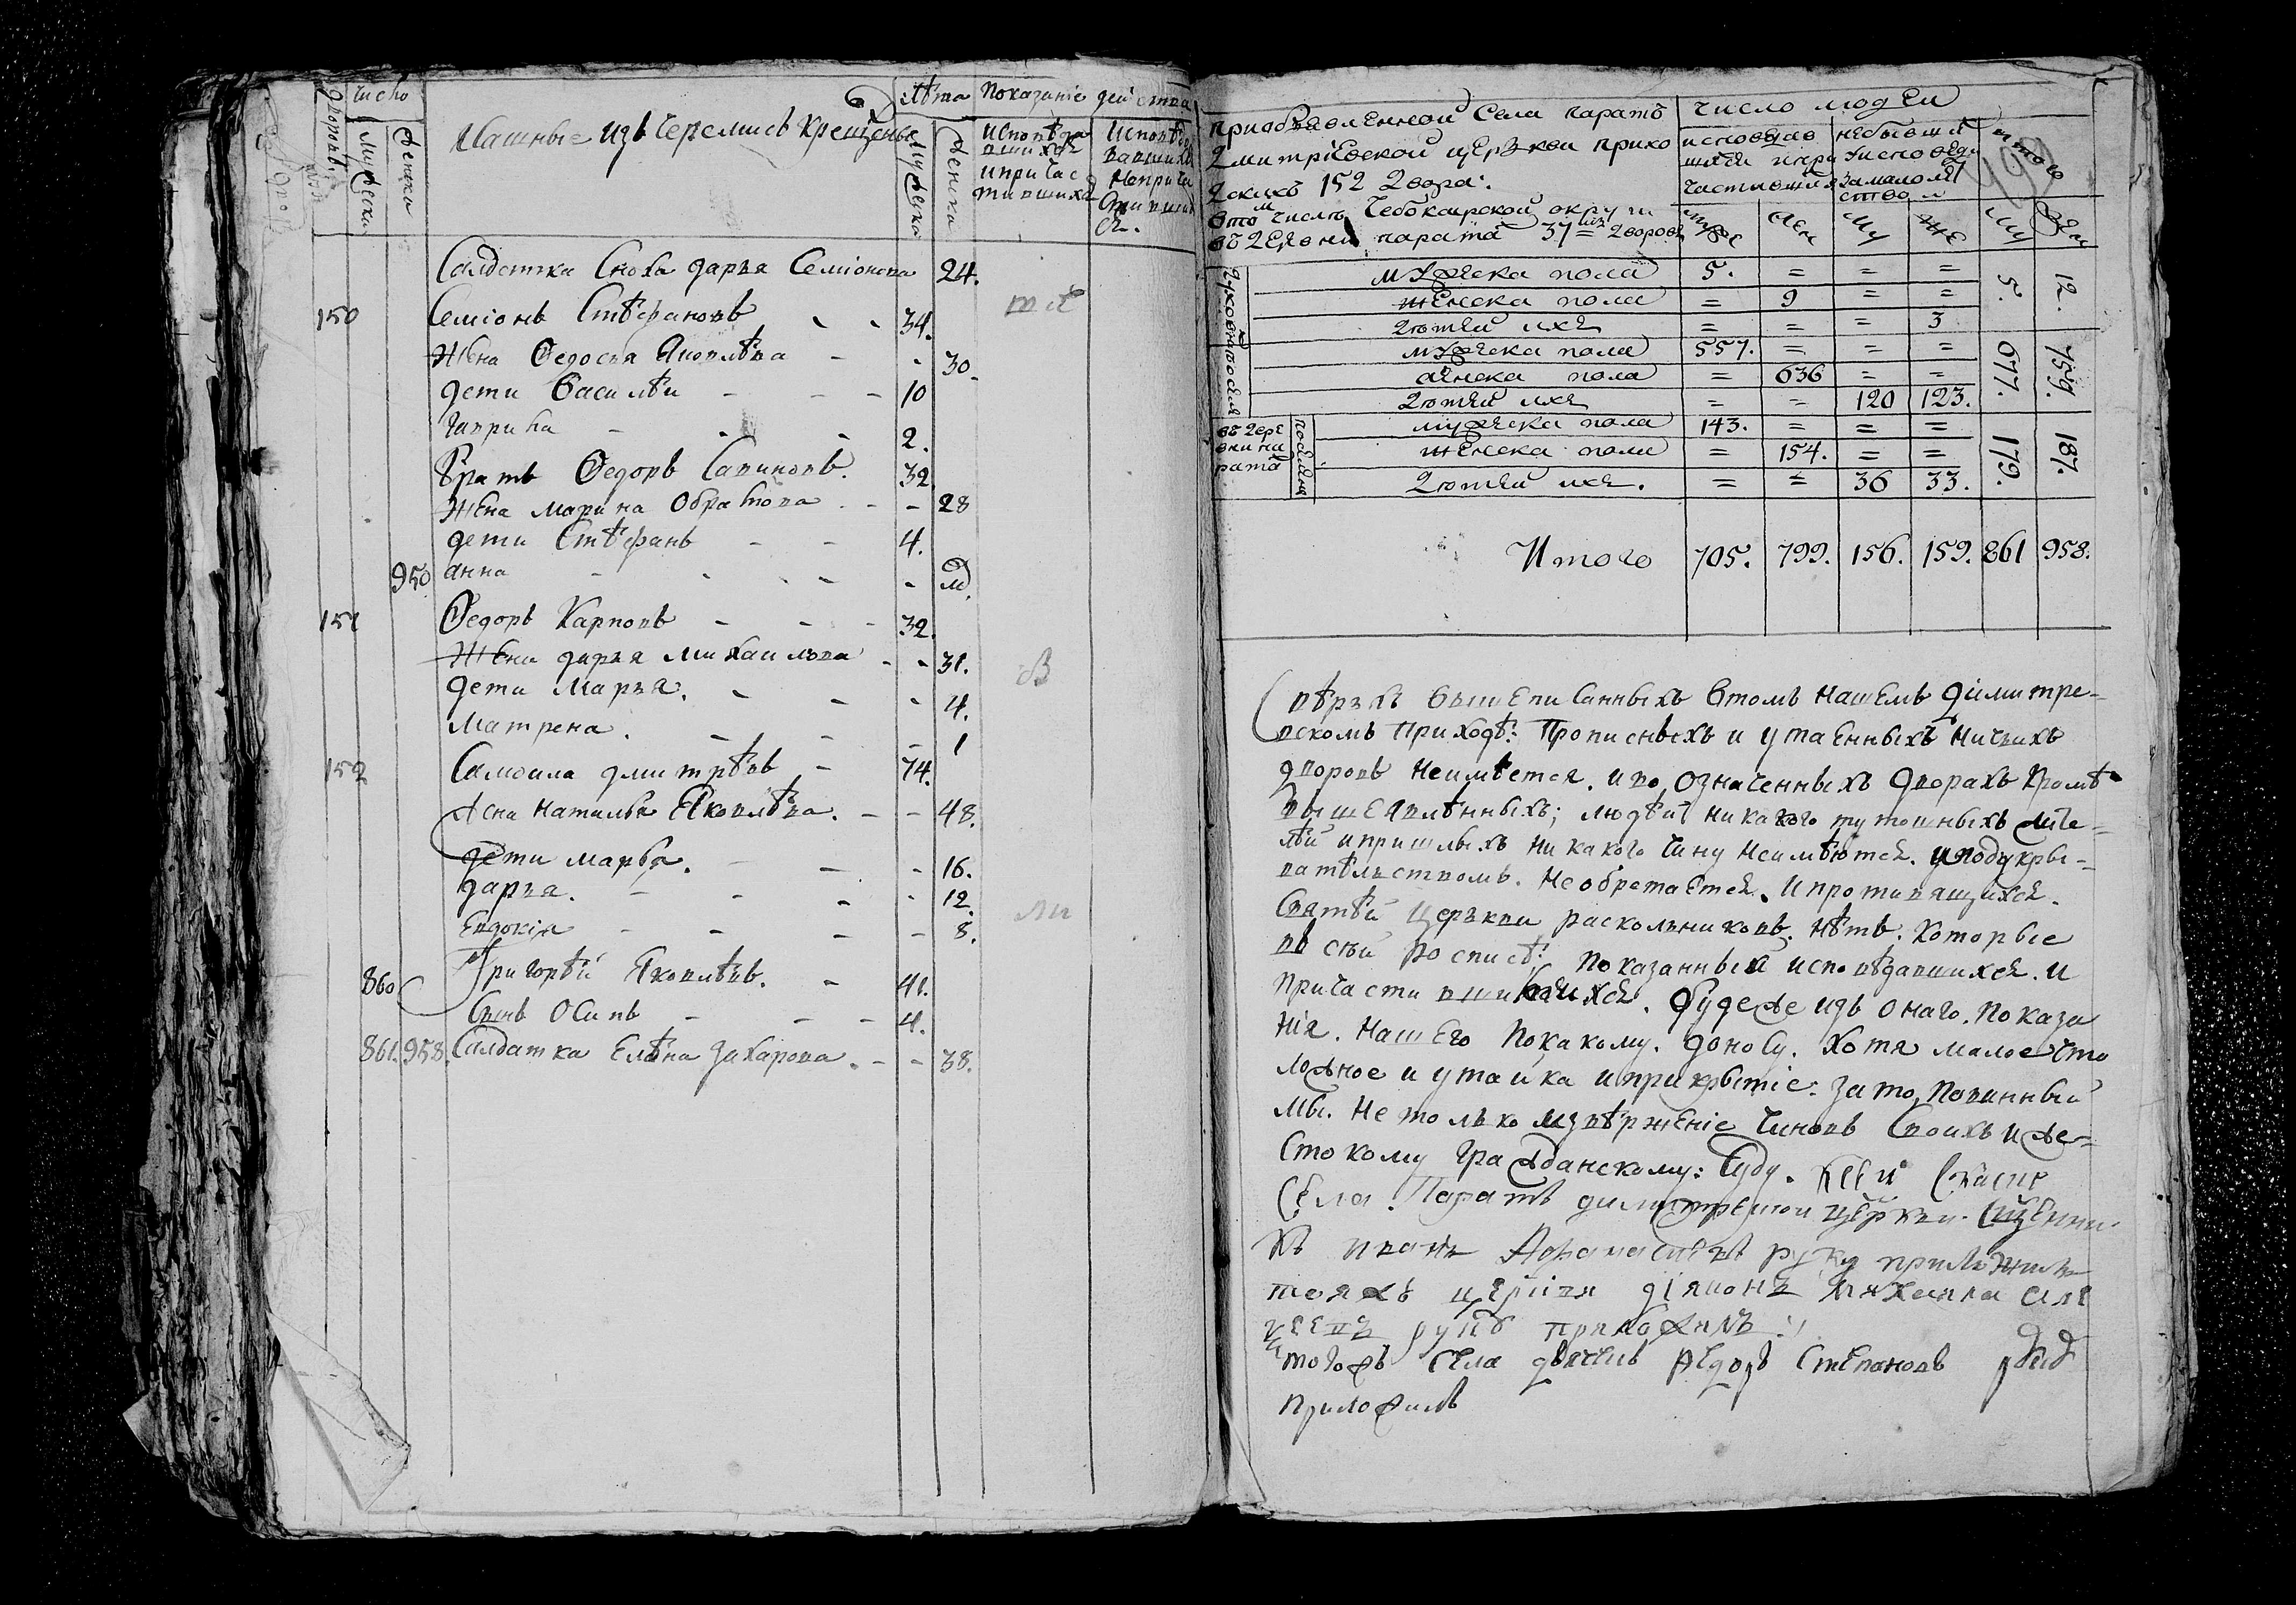 число
дворовъ
мужеска
женска
Ясашные изъ черемисъ крещены
лѣта
Показаніе действа
мужеска
женска
исповѣда
вшихся
и причас
тившихся
Исповѣд
вавшихъ
Неприча
стивших
ся.
Салдатка Сноха дарья Семіонова 24.
150 Семіонъ Стѣфановъ - - 34.
Жена Федосья Яковлѣва - - 30.
дети Василѣи - - - 10
Гаврила - - - 2.
братъ Федоръ Савиновъ. 32.
Жена марина - - 28
дети Стѣфанъ - - 4.
950 анна - - - - м.
151 Федоръ Карповъ - - - 32.
Жена дарья михаилова - - 31.
дети марья. - - - 4.
матрена. - - - 1
152 Самоила дмитрѣвъ - 74.
жена наталья Яковлѣва. - - 48.
дети марья. - - - 16.
дарья. - - - - 12.
Евдокія - - - - 8.
860 Григорѣй Яковлѣвъ. - 41.
Сынъ Осипъ - - - 4.
861. 958. Салдатка Елѣна захарова. - - 38.
при объявленной Села паратъ
дмитріевской церькви прихо
дскихъ 152 двора:
въ томъ числѣ Чебоксарской округи
въ деревни паратѣ 37 дворовъ
число людей
исповедав
шихся и при
частившихся
небывши
у исповеди
за малолѣт
ством
итого
муже жен му же му жен
мужеска пола 5. = = = 5. 12.
женска пола = 9 = =
дѣтей ихъ = = = 3
мужеска пола 557. = = = 677. 759.
женска пола = 636 = =
дѣтей ихъ = = 120 123.
въ дере
вни па
ратѣ
мужеска пола 143. = = = 179. 187.
женска пола = 154. = =
дѣтей ихъ. = = 36 33.
Итого 705. 799. 156. 159. 861 958.
Свѣрьхъ вышеписанныхъ втомъ нашемъ димитре-
вскомъ приходѣ: Прописныхъ и утаенныхъ ничьихъ
дворовъ неимѣется. и во означенныхъ дворахъ кромѣ
выше явлѣнныхъ; людѣй никакого тутошныхъ жите-
лѣй и пришлыхъ никакого чину неимѣются. и подукры-
вательствомъ. Необретается. И противящихся.
Святѣй церькви раскольниковъ. нѣтъ. Которые
въ сѣй росписѣ: показанныя исповѣдавшихся. и
причастившихся. буде же изъ онаго. Показа
нія. Нашего покакому. доносу. хотя малое что
ложное и утайка и прикрытіе: за то повинный
мы. не только изверженіе чиновъ своихъ и же-
стокому гражданскому: Суду. Къ сей
Села. Паратъ димитревской церкви. Сщенни-
къ иванъ Афанасьевъ руку приложилъ
тояжъ церкви діяконъ
руку приложилъ
тогожъ села дьячекъ Федоръ Степановъ руку
приложилъ